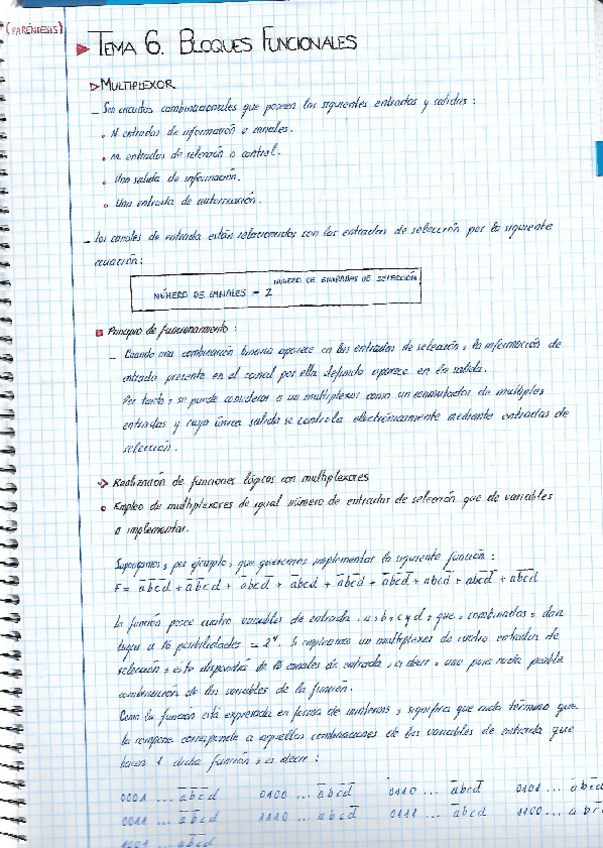 (PARÉNTESIS)
TEMA 6. BLOQUES FUNCIONALES
MULTIPLEXOR
– Son circuitos combinacionales que poseen las siguientes entradas y salidas:
• N entradas de información o canales.
• M entradas de selección o control.
• Una salida de información.
• Una entrada de autorización.
– Los canales de entrada están relacionados con las entradas de selección por la siguiente
ecuación:
NÚMERO DE CANALES = 2 NÚMERO DE ENTRADAS DE SELECCIÓN
Principio de funcionamiento:
– Cuando una combinación binaria aparece en las entradas de selección, la información de
entrada presente en el canal por ella definido aparece en la salida.
Por tanto, se puede considerar a un multiplexor como un conmutador de múltiples
entradas y cuya única salida se controla electrónicamente mediante entradas de
selección.
Realización de funciones lógicas con multiplexores
Empleo de multiplexores de igual número de entradas de selección que de variables
a implementar.
Supongamos, por ejemplo, que queremos implementar la siguiente función:
F =
La función posee cuatro variables de entrada, a, b, c y d, que, combinadas, dan
lugar a 16 posibilidades = 2⁴. Si empleamos un multiplexor de cuatro entradas de
selección, éste dispondrá de 16 canales de entrada, es decir, uno para cada posible
combinación de las variables de la función.
Como la función está expresada en forma de minterms, significa que cada término que
la compone corresponde a aquellas combinaciones de las variables de entrada que
hacen 1 dicha función, es decir:
0001 ... 0100 ... 0110 ... 0101 ...
0011 ... 1110 ... 0111 ... 1100 ...
1001 ...